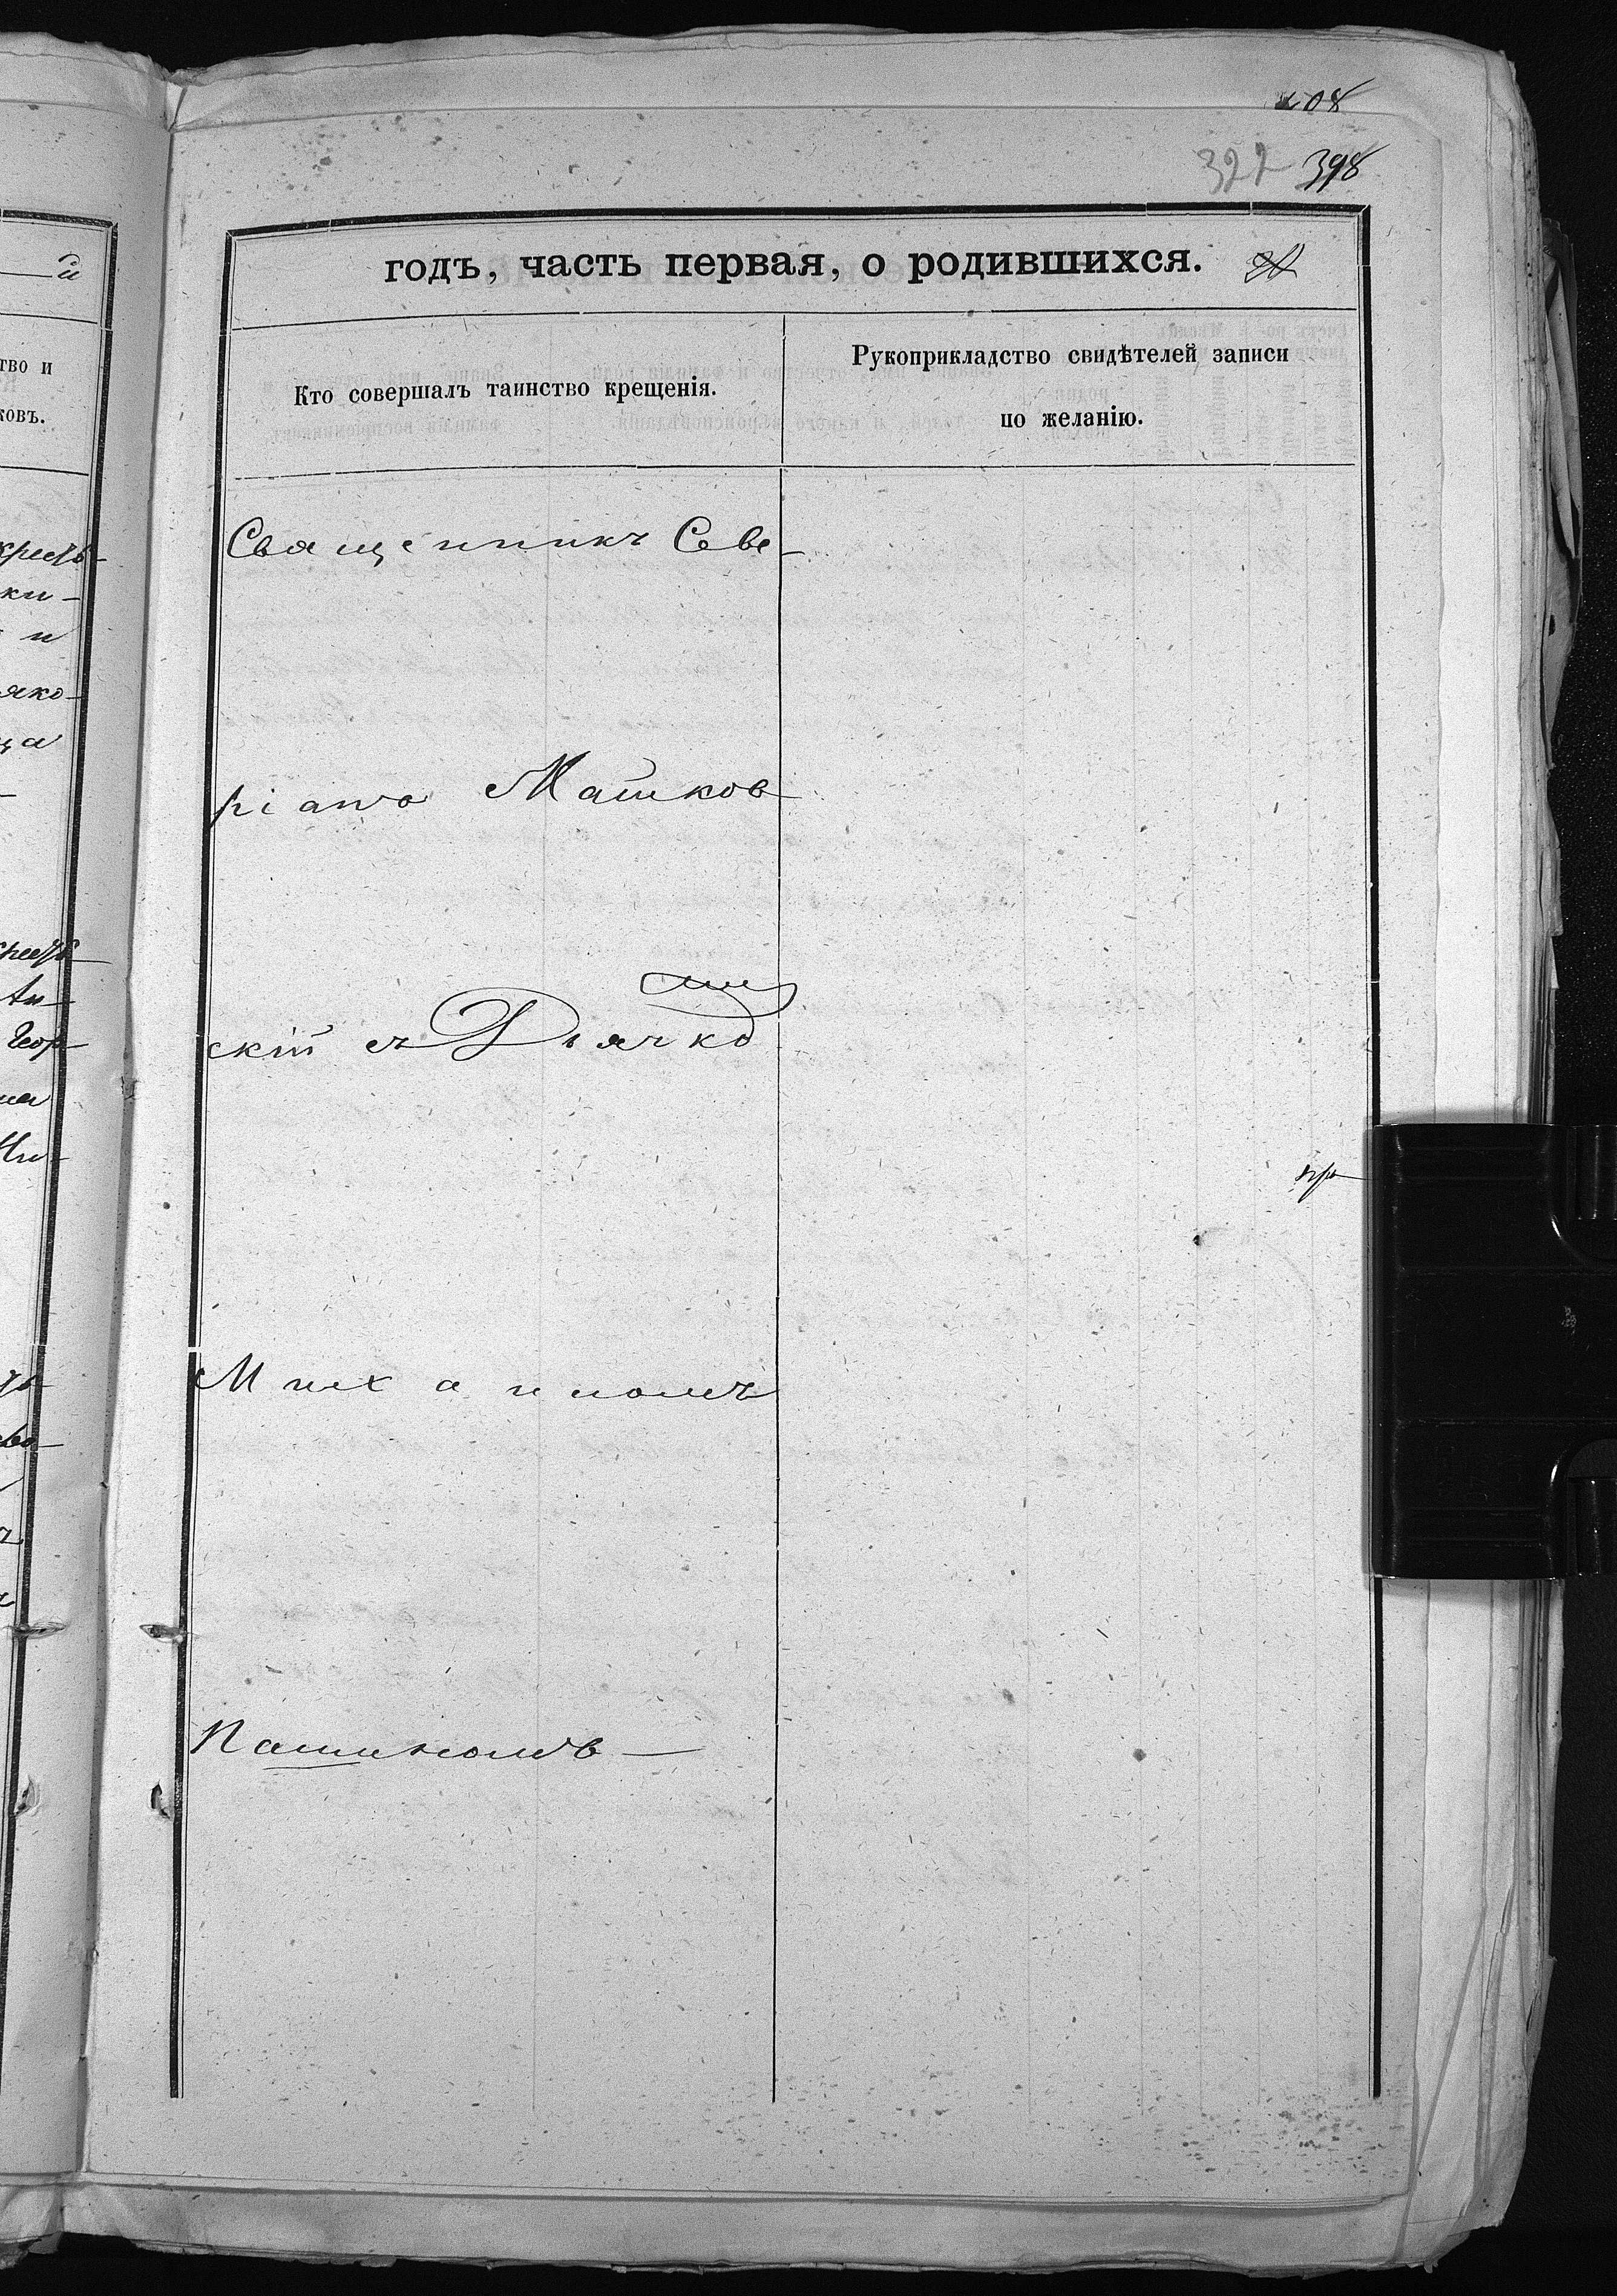 408
322 398
годъ, часть первая, о родившихся.
Кто совершалъ таинство крещенія.
Рукоприкладство свидѣтелей записи
по желанію.
Священникъ Севе-
ріанъ Машков
скій съ Дьячко
мъ
Михаиломъ
Пашинымъ
тво и
ковъ.
крестъ-
ки-
и
яко-
ца
Ан-
Геор-